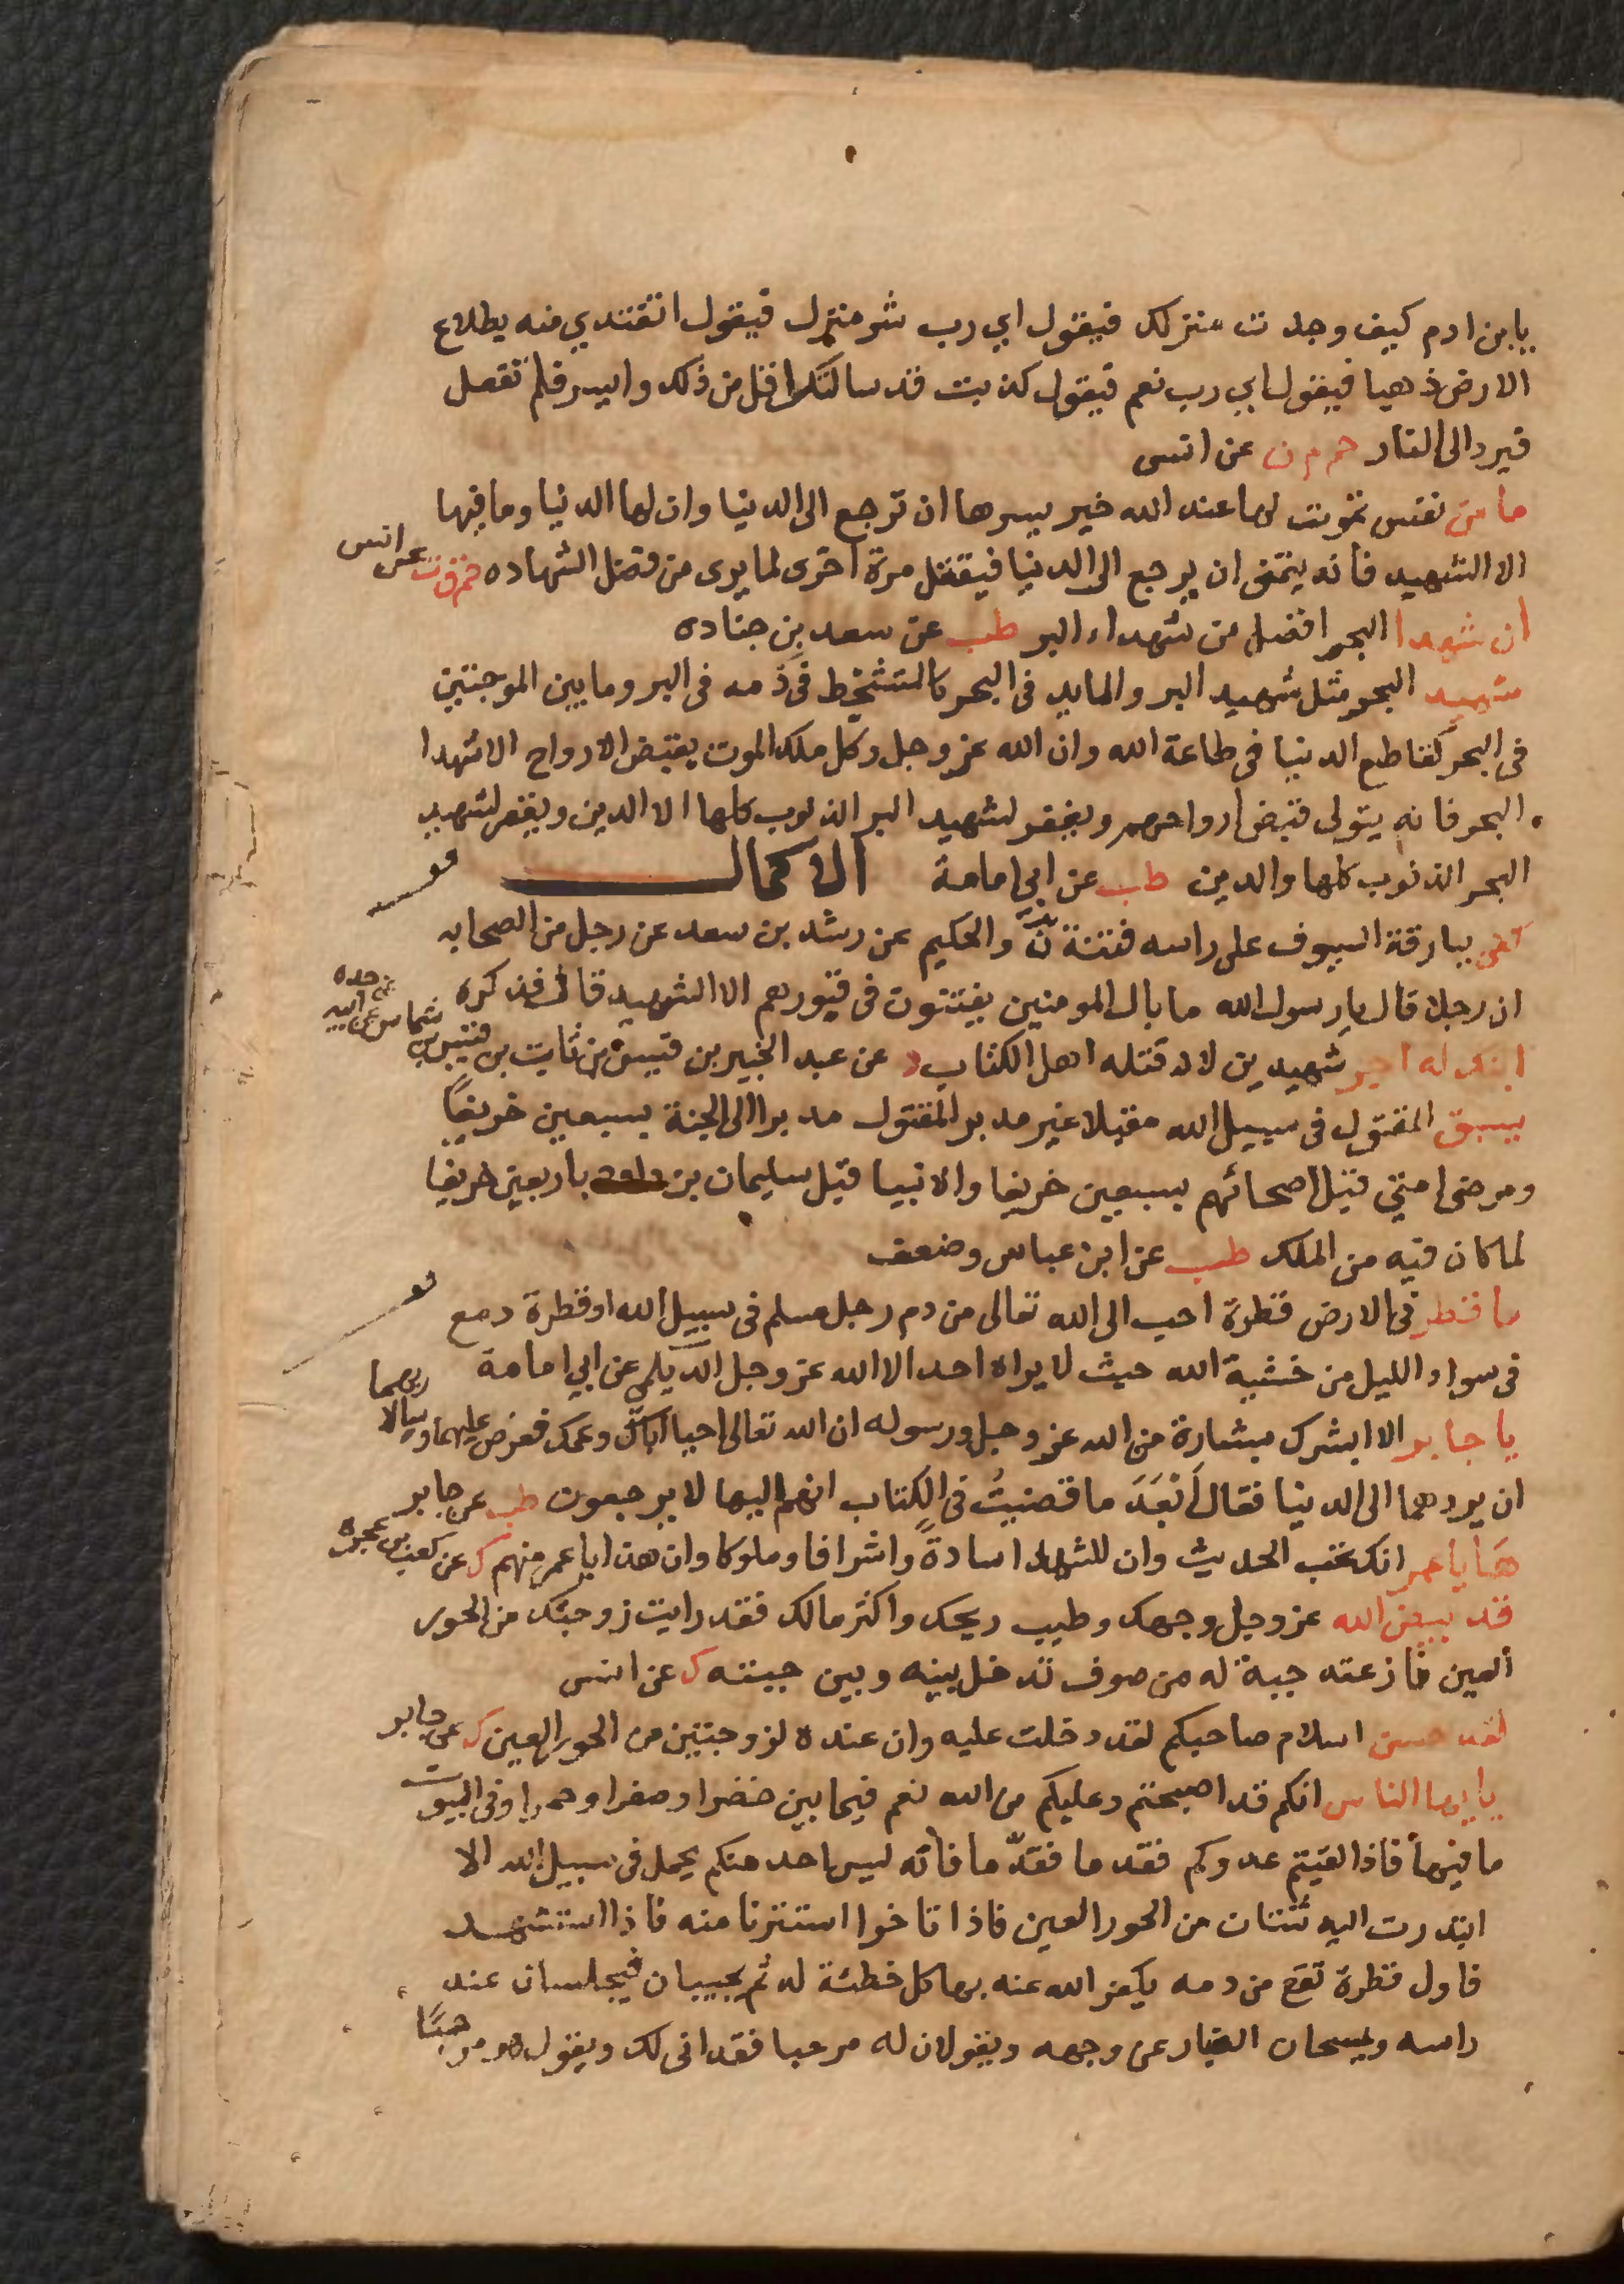 يابن ادم كيف وجدت منزلك فيقول اي رب شر منزل فيقول اتفتدي منه بطلاع
الارض ذهبا فيقول اي رب نعم فيقول كذبت قد سالتك اقل من ذلك وايسر فلم تفعل
فيرد الى النار حم م ن عن انس
ما من نفس تموت لها عند الله خير يسرها ان ترجع الى الدنيا وان لها الدنيا وما فيها
الا الشهيد فانه يتمنى ان يرجع الى الدنيا فيقتل مرة اخرى لما يرى من فضل الشهاده حم ق ت عن انس
ان شهدا البحر افضل من شهداء البر طب عن سعد بن جناده
شهيد البحر مثل شهيد البر والمايد في البحر كالمتشحط في دمه في البر وما بين الموجتين
في البحر كقاطع الدنيا في طاعة الله وان الله عز وجل وكل ملك الموت بقبض الارواح الا شهدا
البحر فانه يتولى قبض ارواحهم ويغفر لشهيد البر الذنوب كلها الا الدين ويغفر لشهيد
البحر الذنوب كلها والدين طب عن ابي امامة الاكمال
كفى ببارقة السيوف على راسه فتنة ن والحكيم عن رشد بن سعد عن رجل من الصحابه
ان رجلا قال يا رسول الله ما بال المومنين يفتنون في قبورهم الا الشهيد قال فذكره
ابنك له اجر شهيدين لانه قتله اهل الكتاب د عن عبد الخبير بن قيس بن ثابت بن قيس بن شماس عن ابيه عن جده
يسبق المقتول في سبيل الله مقبلا غير مدبر المقتول مدبرا الى الجنة بسبعين خريفاً
ومرضى امتي قبل اصحائهم بسبعين خريفا والانبيا قبل سليمان بن داود باربعين خريفا
لما كان فيه من الملك طب عن ابن عباس وضعف
ما قطر في الارض قطرة احب الى الله تعالى من دم رجل مسلم في سبيل الله او قطرة دمع
في سواد الليل من خشية الله حيث لا يراه احد الا الله عز وجل الديلمي عن ابي امامة
يا جابر الا ابشرك ببشارة من الله عز وجل ورسوله ان الله تعالى احيا اباك وعمك فعرض عليهما وسالا ربهما
ان يردهما الى الدنيا فقال أبَعَدَ ما قضيتُ في الكتاب انهم اليها لا يرجعون طب عن جابر
هَا يا عمر انك تحب الحديث وان للشهدا سادةً واشرافا وملوكا وان هذا يا عمر منهم ك عن كعب بن عجرة
قد بيض الله عز وجل وجهك وطيب ريحك واكثر مالك فقد رايت زوجتك من الحور
العين نازعته جبة له من صوف تدخل بينه وبين جبته ك عن انس
لقد حسن اسلام صاحبكم لقد دخلت عليه وان عنده لزوجتين من الحور العين ك عن جابر
يا ايها الناس انكم قد اصبحتم وعليكم من الله نعم فيما بين خضرا وصفرا وحمرا وفي البيوت
ما فيها فاذا لقيتم عدوكم فقدما فقدّما فانه ليس احد منكم يحمل في سبيل الله الا
ابتدرت اليه ثنتان من الحور العين فاذا تاخرا استترتا منه فاذا استشهد
فاول قطرة تقع من دمه يكفر الله عنه بها كل خطئة له ثم يجيبان فيجلسان عند
راسه ويمسحان الغبار عن وجهه ويقولان له مرحبا فقد انى لك ويقول هو مرحبًا